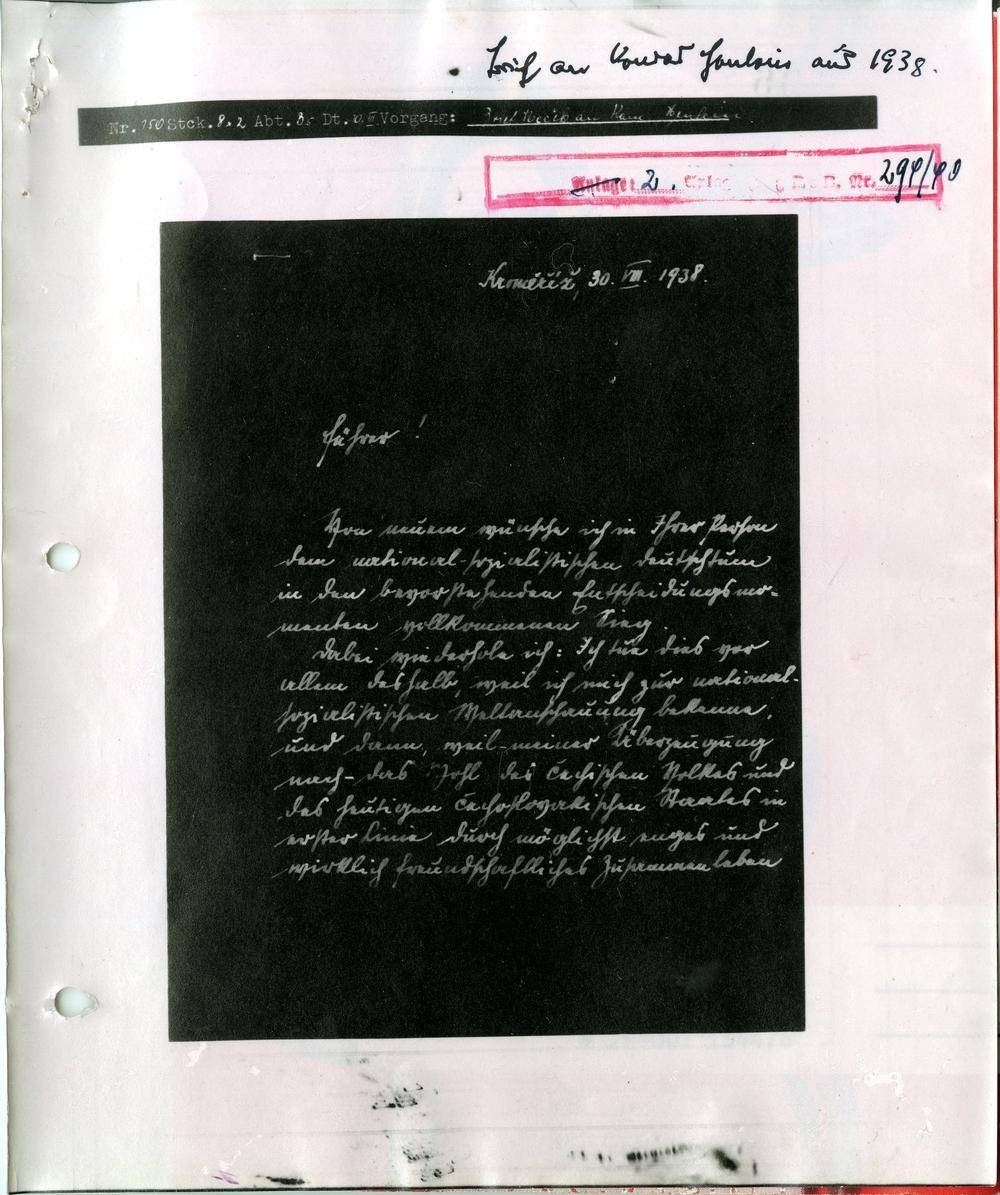 Brief an Konrad Henlein aus 1938.
Nr. 150 Stck. 8.2 Abt. Dt. Vorgang: Brief an Henlein
Anlage: 2. Nr. 294/40
Kroměříž, 30. VIII. 1938.
Führer!
Von neuem wünsche ich in Ihrer Person
dem national-sozialistischen Deutschtum
in den bevorstehenden Entscheidungsmo-
menten vollkommenen Sieg.
Dabei wiederhole ich: Ich tue dies vor
allem deshalb, weil ich mich zur national-
sozialistischen Weltanschauung bekenne,
und dann, weil - meiner Überzeugung
nach - das Wohl des čechischen Volkes und
des heutigen čechoslovakischen Staates in
erster Linie durch möglichst enges und
wirklich freundschaftliches Zusammenleben